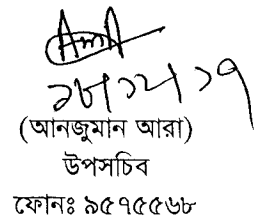 ২৮/১২/১৭
(আনজুমান আরা)
উপসচিব
ফোনঃ ৯৫৭৫৫৬৮